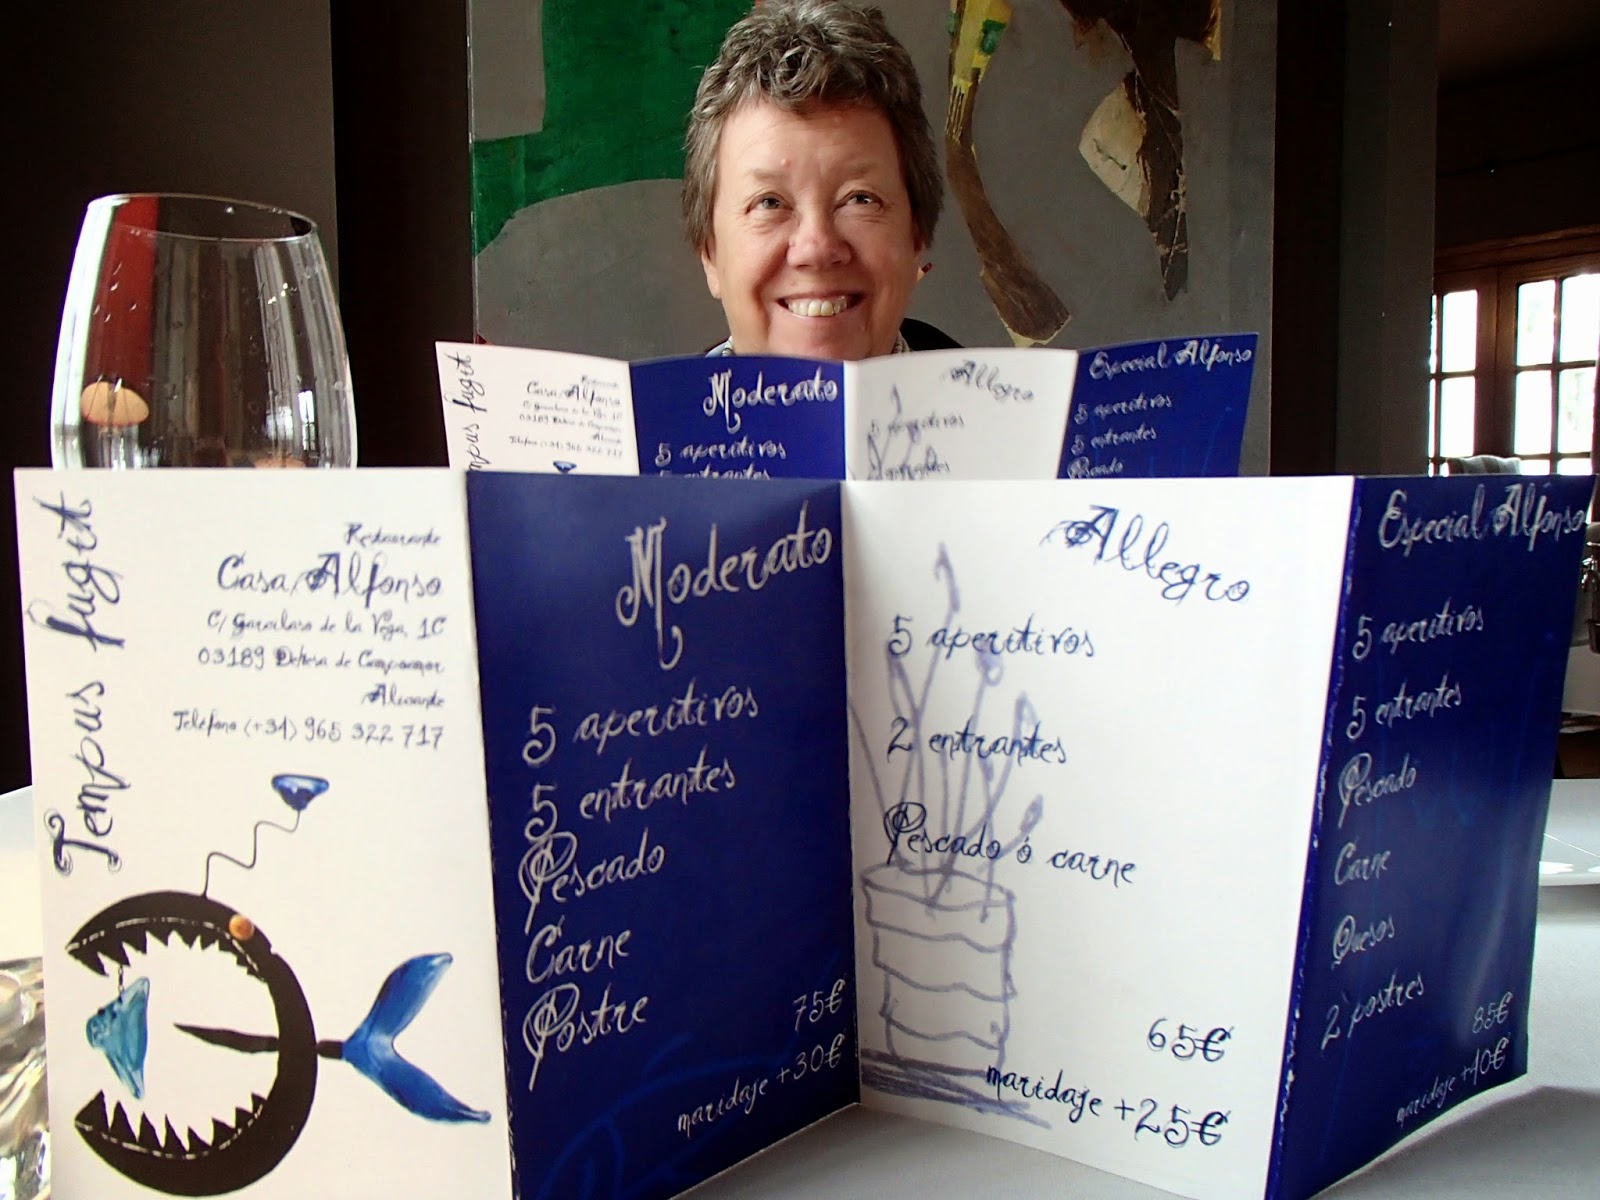 Tempus fugit
Restaurante
Casa Alfonso
C/ Garcilaso de la Vega, 1C
03189 Dehesa de Campoamor
Alicante
Teléfono (+34) 965 322 717
Moderato
5 aperitivos
5 entrantes
Pescado
Carne
Postre
75€
maridaje +30€
Allegro
5 aperitivos
2 entrantes
Pescado ó carne
65€
maridaje +25€
Especial Alfonso
5 aperitivos
5 entrantes
Pescado
Carne
Quesos
2 postres
85€
maridaje +40€
mpus fugit
Restaurante
Casa Alfonso
C/ Garcilaso de la Vega, 1C
03189 Dehesa de Campoamor
Alicante
Teléfono (+34) 965 322 717
Moderato
5 aperitivos
5 entrantes
Allegro
5 aperitivos
2 entrantes
Especial Alfonso
5 aperitivos
5 entrantes
Pescado